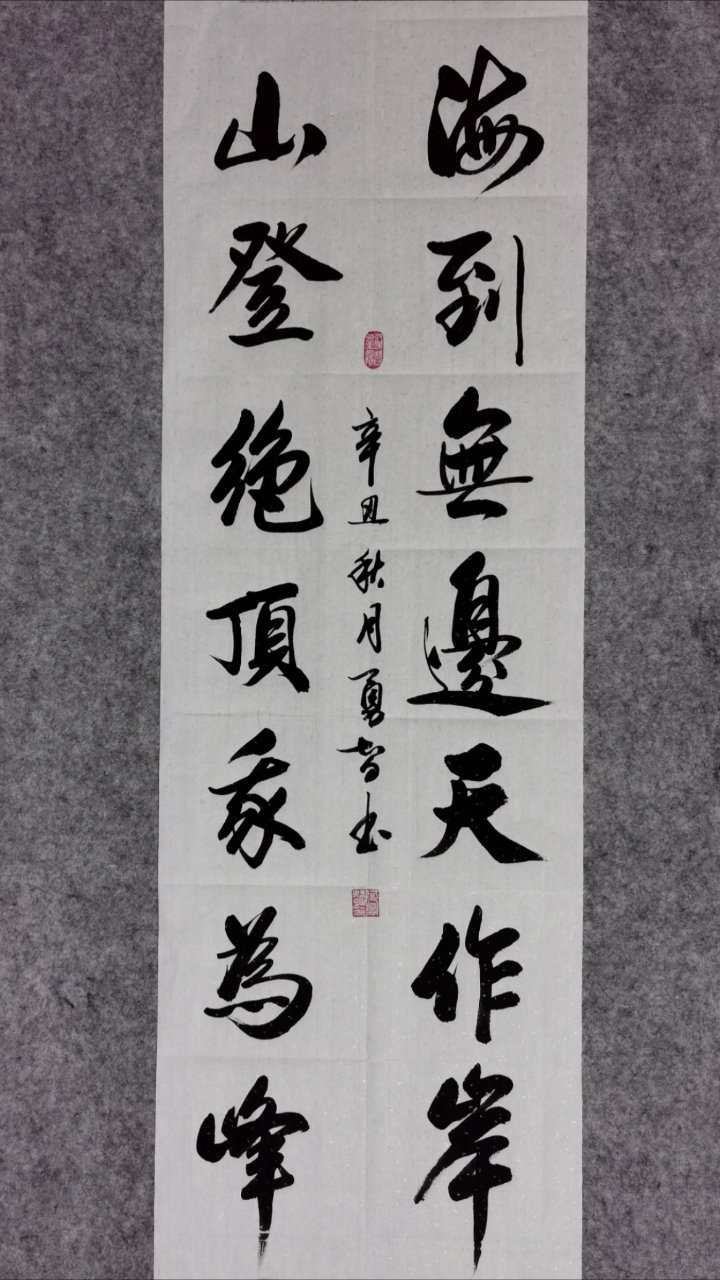 海到無邊天作岸
山登絶頂我為峰
辛丑秋月勇智书